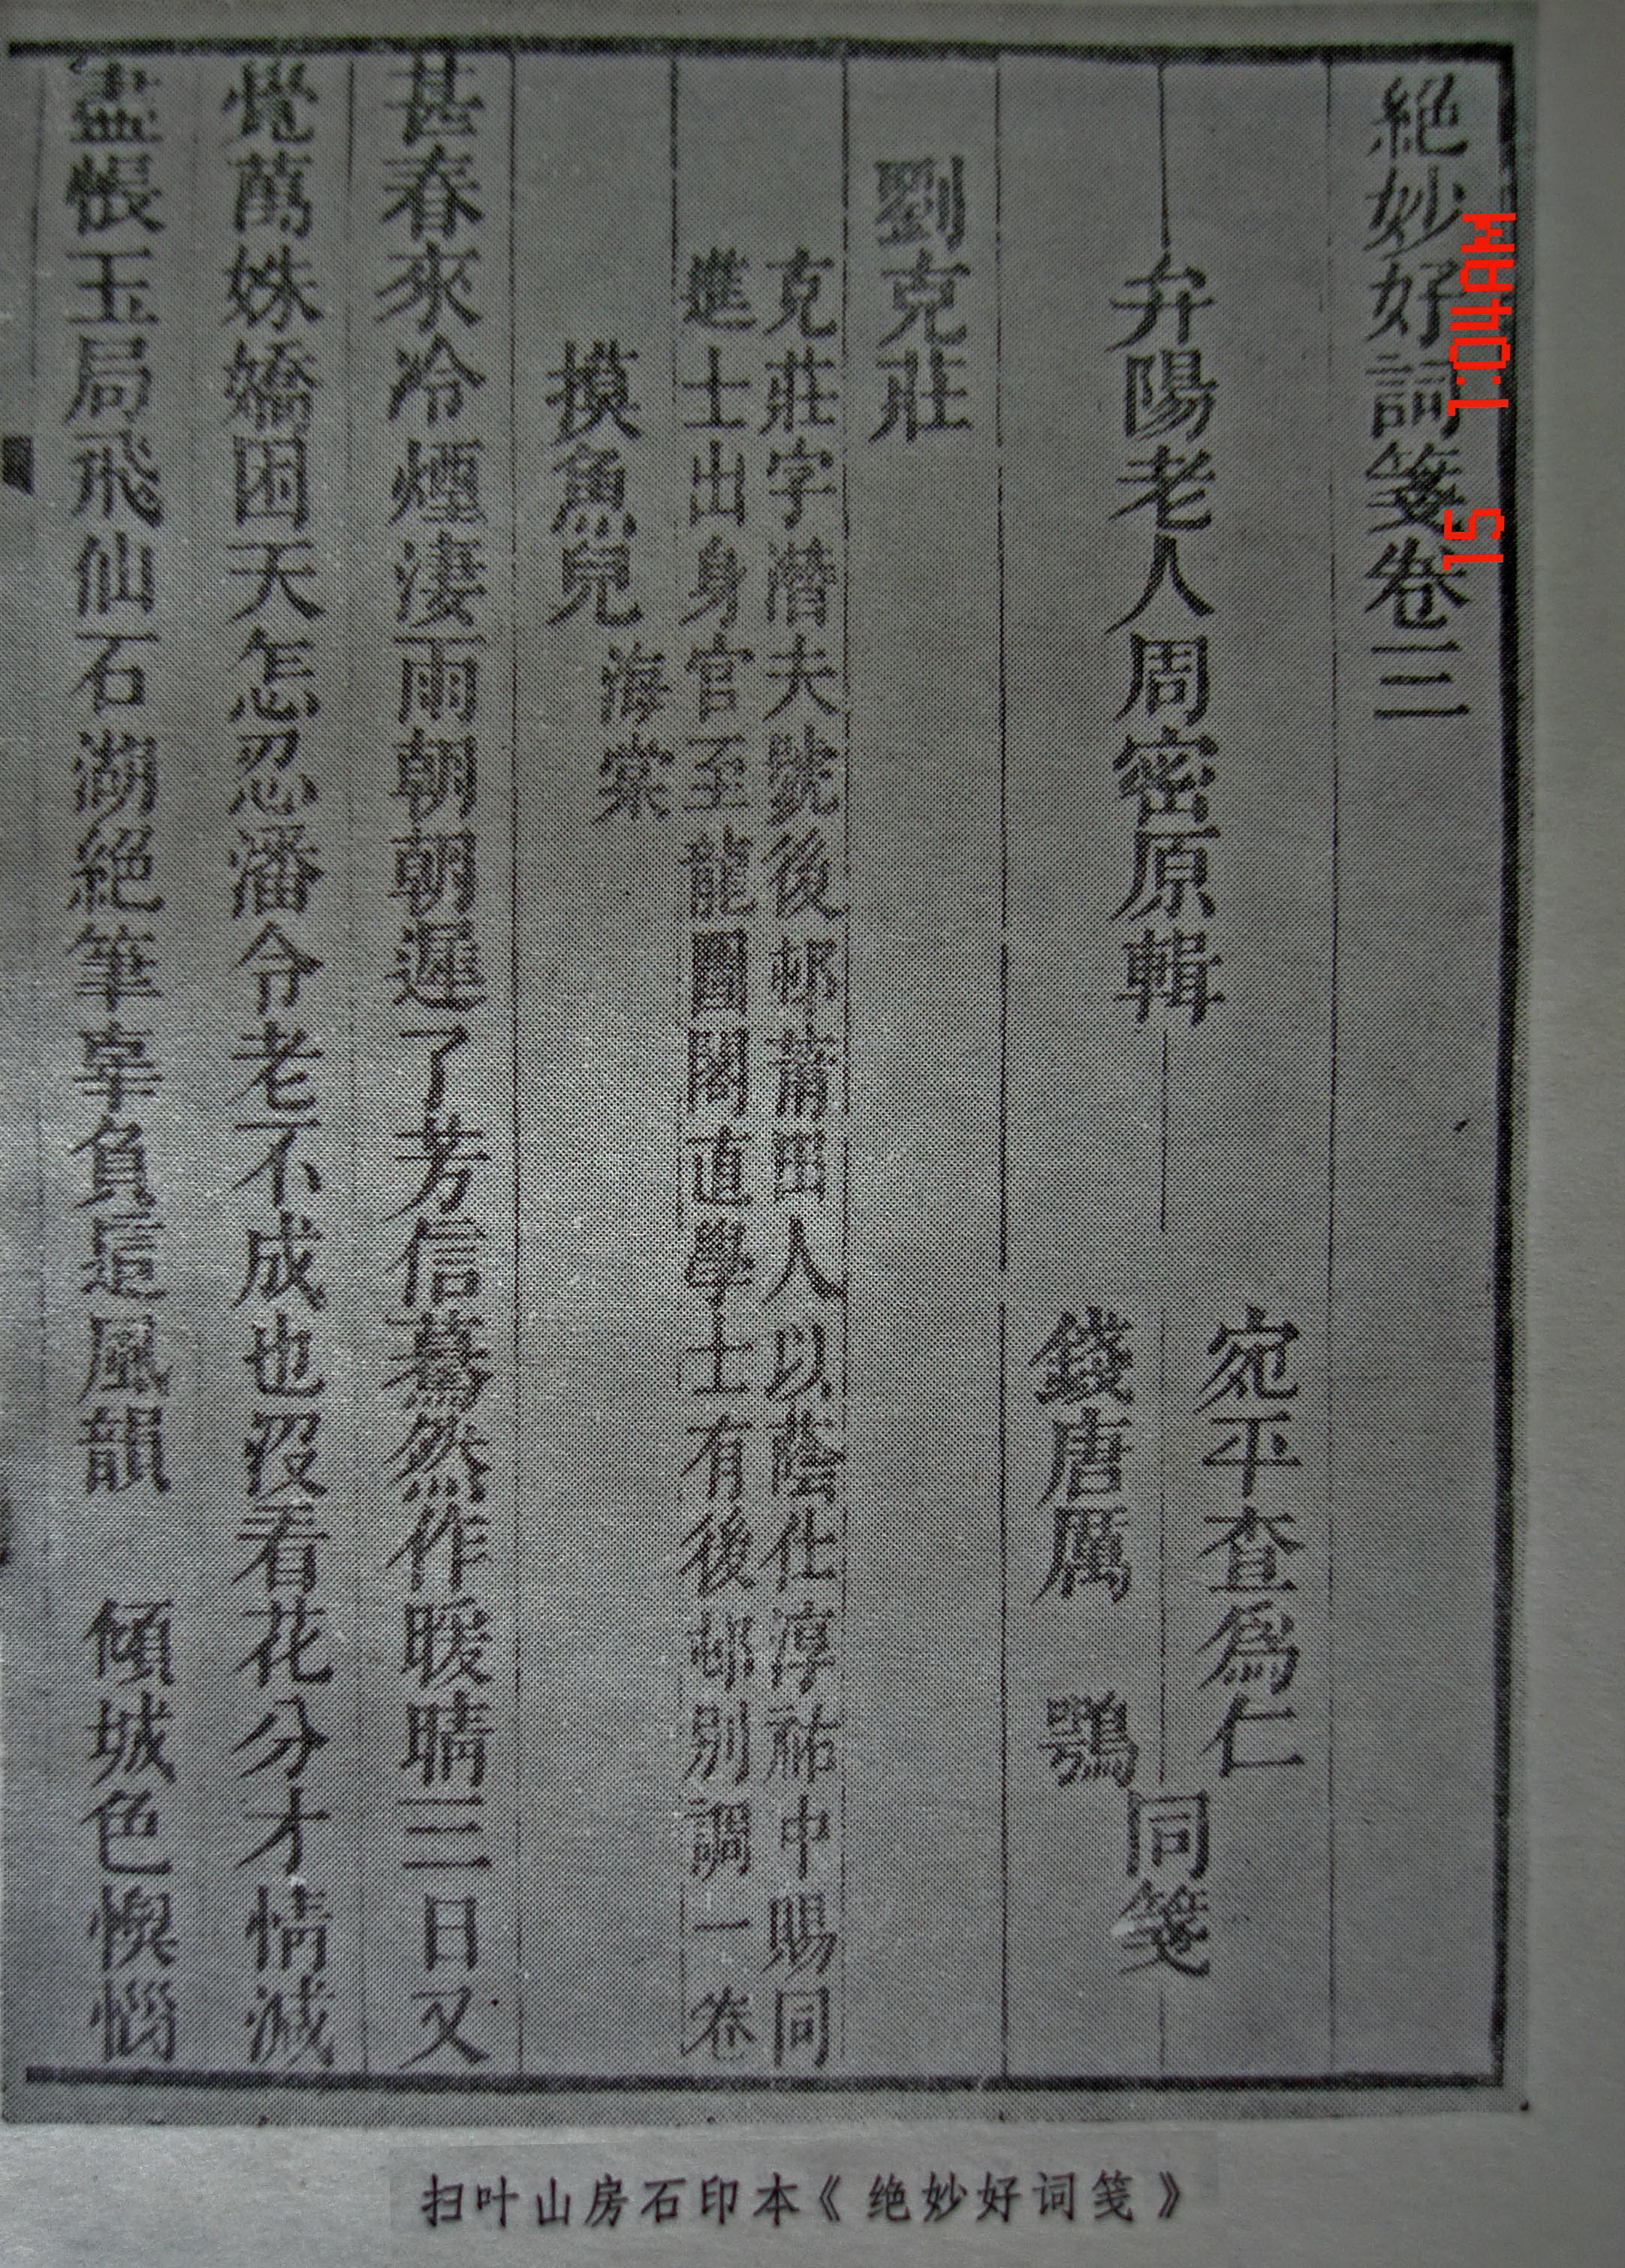 絕妙好詞箋卷三
弁陽老人周密原輯
宛平查爲仁
錢唐厲　鶚
同箋
劉克莊
克莊字潛夫號後邨莆田人以蔭仕淳祐中賜同
進士出身官至龍圖閣直學士有後邨別調一卷
摸魚兒
海棠
甚春來冷煙淒雨朝朝遲了芳信驀然作暖晴三日又
覺萬姝嬌困天怎忍潘令老不成也沒看花分才情減
盡悵玉局飛仙石湖絕筆辜負這風韻　傾城色懊惱
扫叶山房石印本《绝妙好词笺》